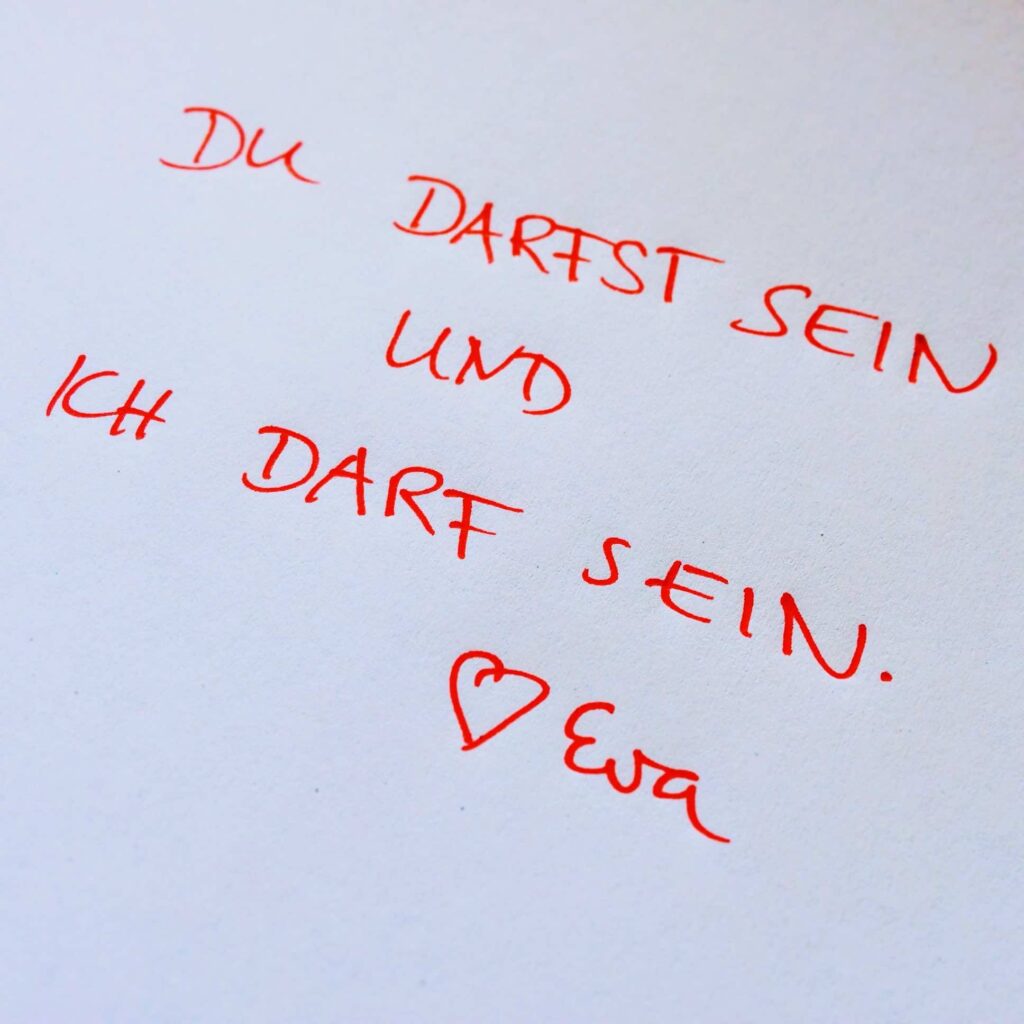 DU DARFST SEIN
UND
ICH DARF SEIN.
♡ Eva